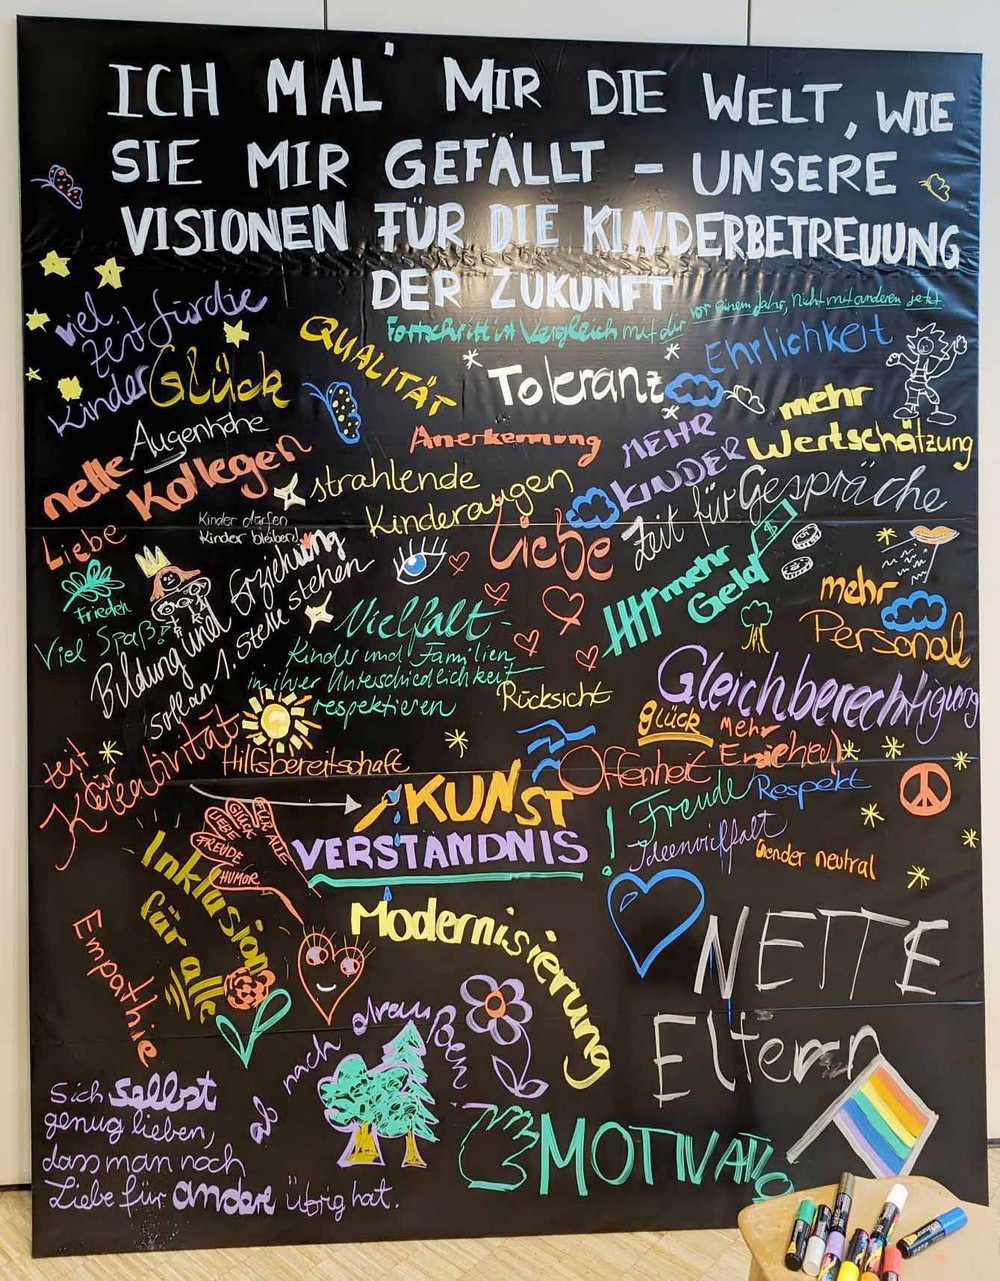 ICH MAL' MIR DIE WELT, WIE
SIE MIR GEFÄLLT – UNSERE
VISIONEN FÜR DIE KINDERBETREUUNG
DER ZUKUNFT
Fortschritt im Vergleich mit dir vor einem Jahr, nicht mit anderen jetzt
viel
Zeit für die
Kinder
Glück
QUALITÄT
Toleranz
Ehrlichkeit
mehr
Wertschätzung
Augenhöhe
Anerkennung
MEHR
KINDER
nette
Kollegen
strahlende
Kinderaugen
Zeit für Gespräche
Liebe
Kinder dürfen
Kinder bleiben!
Liebe
mehr
Geld
$
Frieden
Viel Spaß!
Bildung und Erziehung
soll an 1. Stelle stehen
Vielfalt -
Kinder und Familien
in ihrer Unterschiedlichkeit
respektieren
Rücksicht
mehr
Personal
Gleichberechtigung
Zeit
für
Kreativität
Hilfsbereitschaft
Glück
Mehr
Erzieher!
Offenheit
KUNST
VERSTÄNDNIS
!
Freude
Respekt
Ideenvielfalt
Gender neutral
GLÜCK
FÜR ALLE
LIEBE
FREUDE
HUMOR
Inklusion
für
alle
Empathie
Modernisierung
NETTE
Eltern
ab nach draußen
Sich selbst
genug lieben,
dass man noch
Liebe für andere übrig hat.
MOTIVATION